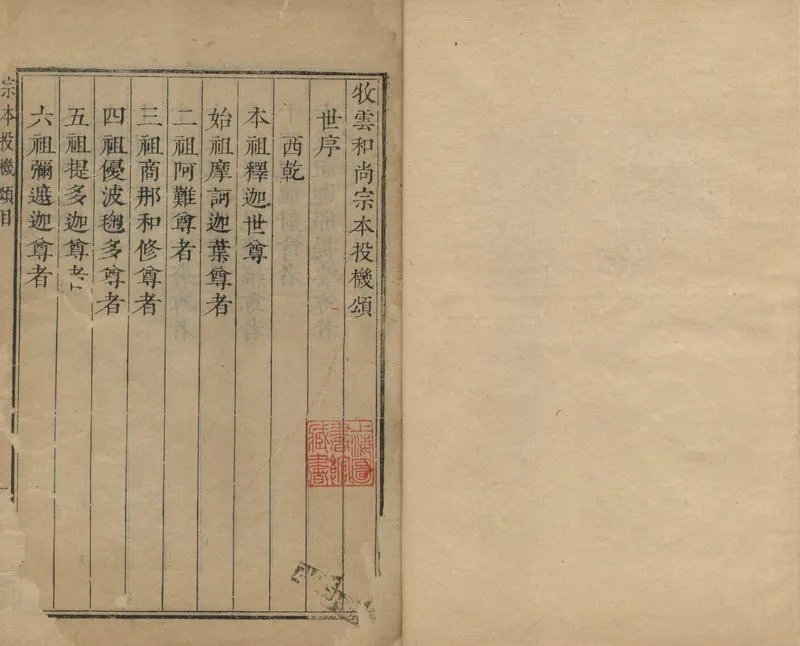 牧雲和尚宗本投機頌
世序
西乾
本祖釋迦世尊
始祖摩訶迦葉尊者
二祖阿難尊者
三祖商那和修尊者
四祖優波毱多尊者
五祖提多迦尊者
六祖彌遮迦尊者
宗本投機頌目
上海圖書館藏書